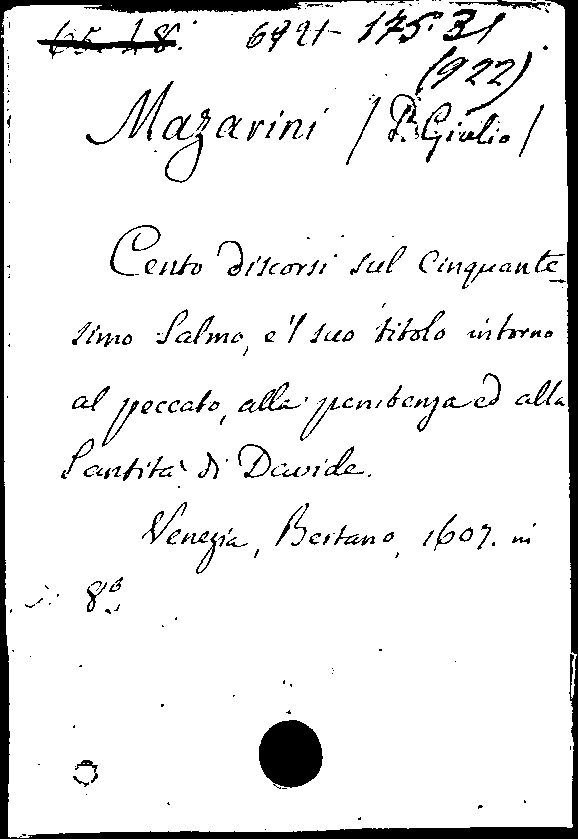 65. 48. 6921- 175. 31
(922)
Mazarini / P. Giulio /
Cento discorsi sul Cinquante_
simo Salmo, e'l suo titolo intorno
al peccato, alla penitenza ed alla
Santità di Davide.
Venezia, Bertano, 1607. in
8º